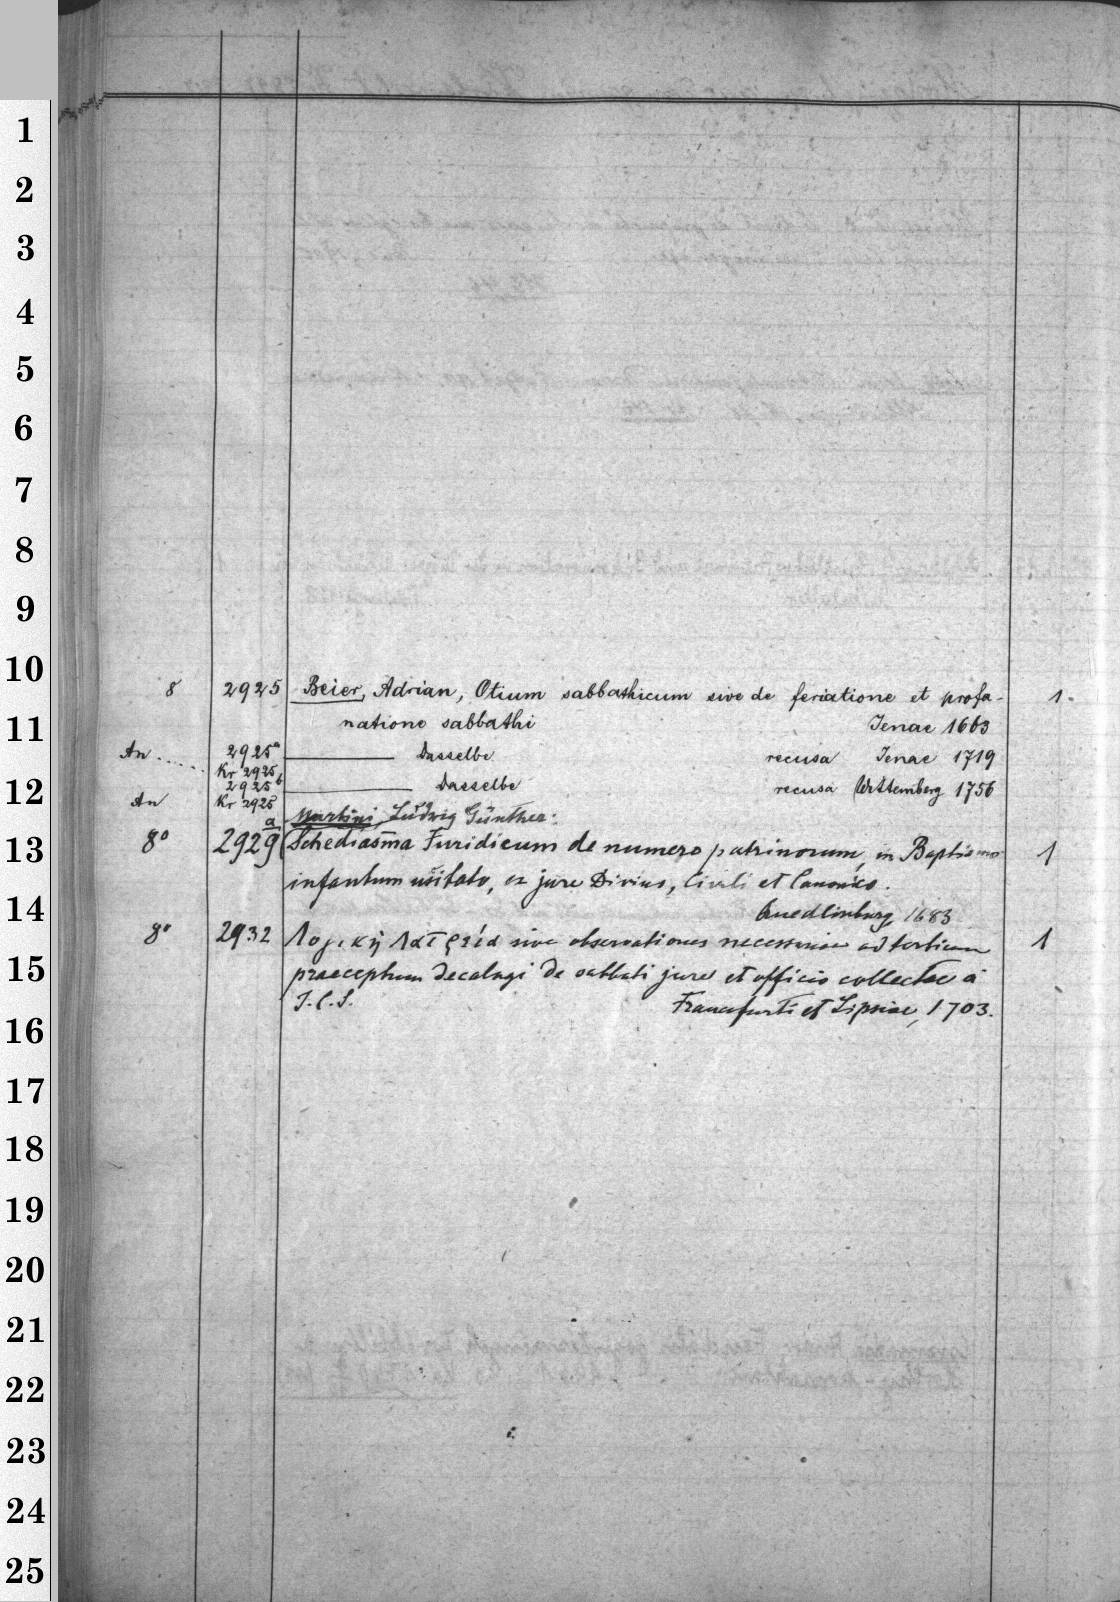 1
2
3
4
5
6
7
8
9
10
8 2925 Beier, Adrian, Otium sabbathicum sive de feriatione et profa- 1
11
natione sabbathi Jenae 1663
An..... 2925a Dasselbe recusa Jenae 1719
Kr 2925
12
2925b Dasselbe recusa Wittemberg 1756
An Kr 2925
Martini, Ludwig Günther:
13
8° 2929a Schediasma Juridicum de numero patrinorum, in Baptismo 1
infantum usitato, ex jure Divino, Civili et Canonico.
14
Quedlinburg 1683
8° 2932 Λογικὴ λατρεία sive observationes necessariae ad tertium 1
15
praeceptum decalogi de sabbati jure et officio collectae à
J.C.S. Francofurti et Lipsiae, 1703.
16
17
18
19
20
21
22
23
24
25